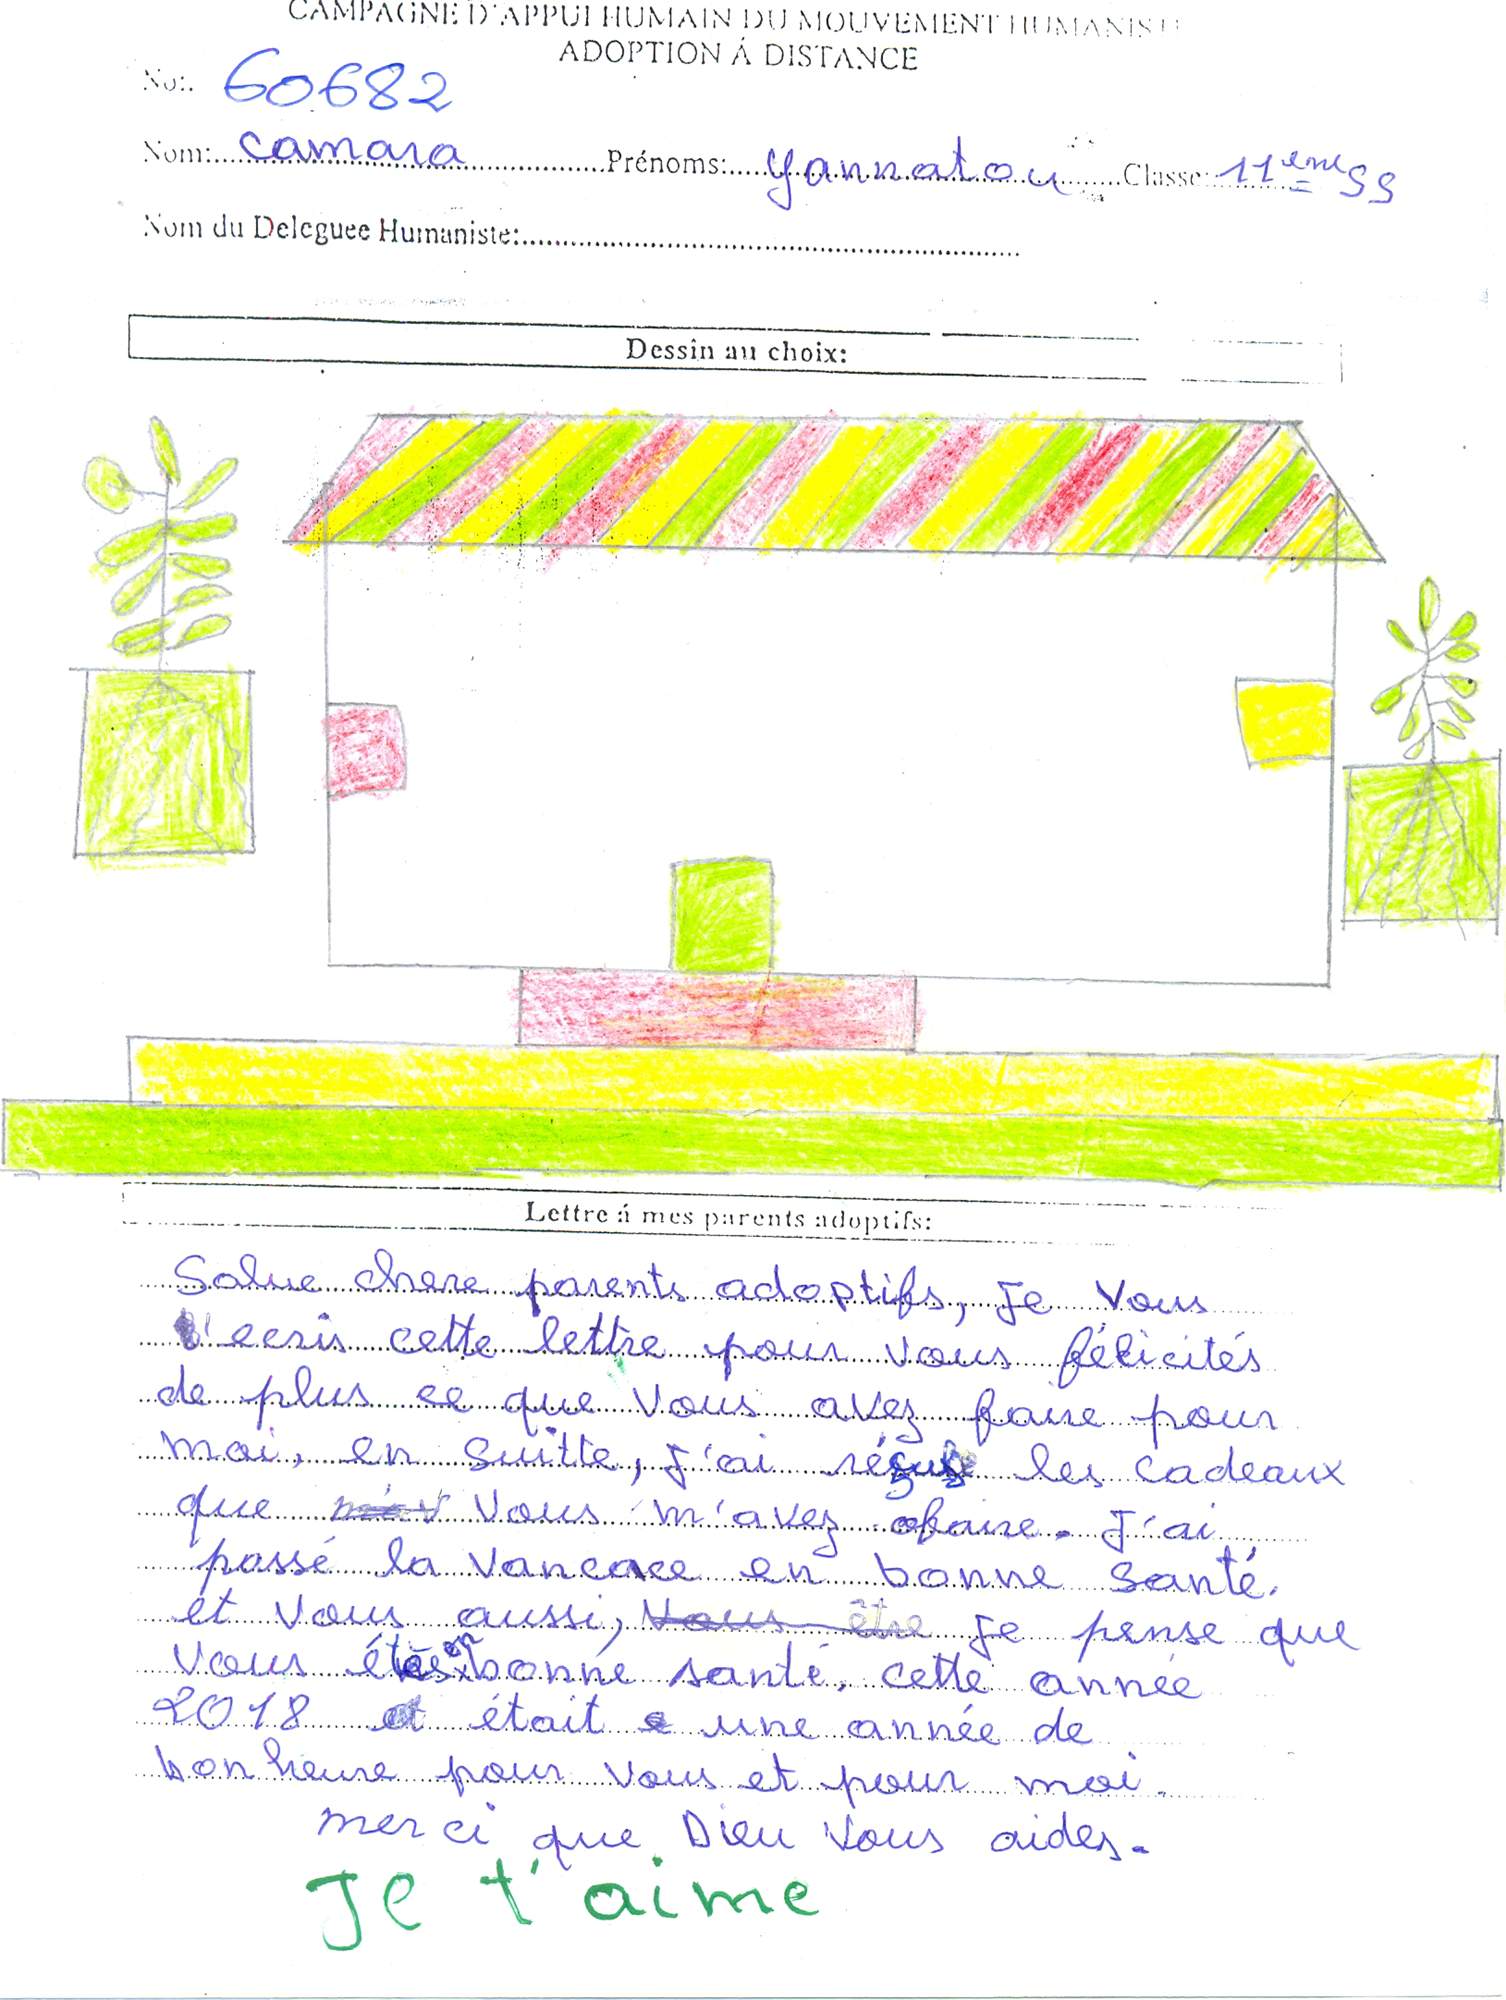 CAMPAGNE D'APPUI HUMAIN DU MOUVEMENT HUMANISTE
ADOPTION Á DISTANCE
No:. 60682
Nom:....camara....Prénoms:....yannatou....Classe:..11ème SS
Nom du Deleguee Humaniste:....
Dessin au choix:
Lettre á mes parents adoptifs:
Salue chere parents adoptifs, Je Vous
ecris cette lettre pour vous félicités
de plus ce que Vous avez faire pour
moi, en suitte, J'ai les cadeaux
que Vous m'avez faire. J'ai
passé la Vancace en bonne santé.
et Vous aussi, Je pense que
Vous étes en bonne santé, cette année
2018 était une année de
bonheure pour Vous et pour moi.
merci que Dieu Vous aides.
Je t'aime